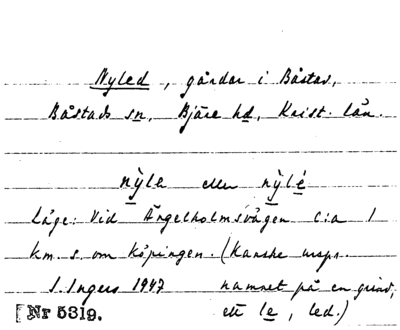 Nyled, gårdar i Båstad,
Båstads sn, Bjäre hd, Krist. län.
nỳle eller nỳlé
Läge: Vid Ängelholmsvägen c:a 1
km. s. om köpingen. (Kanske urspr.
I. Ingers 1947 namnet på en grind,
[Nr 5319. ett le, led.)